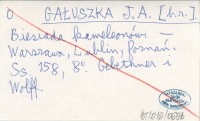 O GAŁUSZKA J. A. [b.r.]
Biesiada kameleonów. —
Warszawa, Lublin, Poznań.
Ss. 158, 8°. Gebethner i
Wolff.